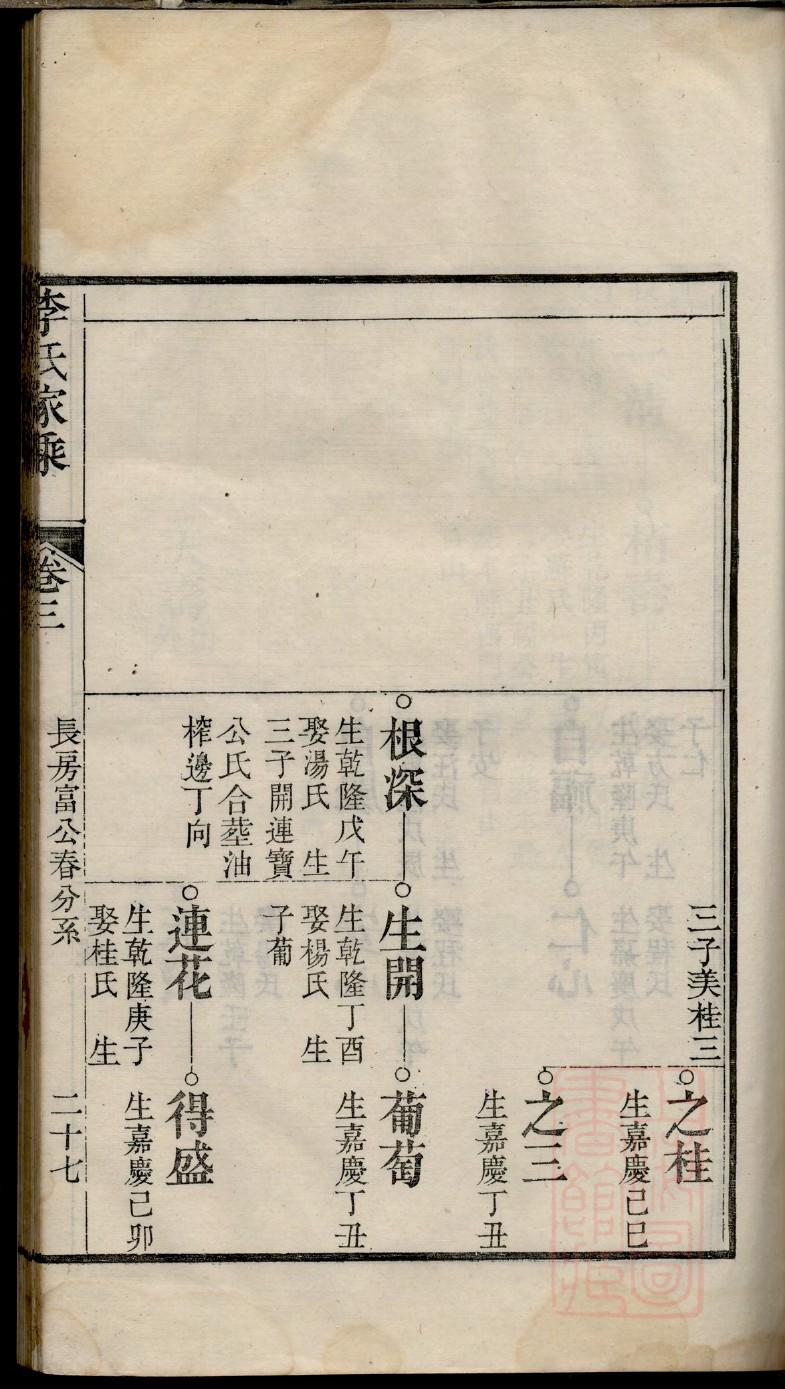 三子美桂三
之桂
生嘉慶己巳
之三
生嘉慶丁丑
根深
生乾隆戊午
娶湯氏　生
三子開連寶
公氏合塟油
榨邊丁向
生開
生乾隆丁酉
娶楊氏　生
子葡
葡萄
生嘉慶丁丑
蓮花
生乾隆庚子
娶桂氏　生
得盛
生嘉慶己卯
李氏家乘
卷三
長房富公春分系
二十七